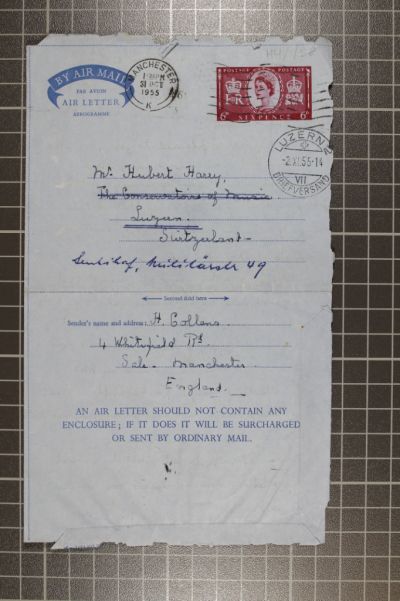 BY AIR MAIL
PAR AVION
AIR LETTER
AEROGRAMME
MANCHESTER
31 OCT
1955
K
POSTAGE POSTAGE
E R
6D SIXPENCE 6D
LUZERN 2
-2.XI.55-14
VII
BRIEFVERSAND
Mr Hubert Harry.
The Conservatoire of Music.
Luzern.
Switzerland-
Militärstr 49
Second fold here
Sender's name and address: H. Collens.
4 Whitefield Rd.
Sale. Manchester.
England.
AN AIR LETTER SHOULD NOT CONTAIN ANY
ENCLOSURE; IF IT DOES IT WILL BE SURCHARGED
OR SENT BY ORDINARY MAIL.